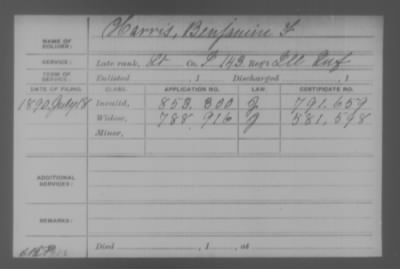 Harris, Benjamin F
NAME OF SOLDIER:
SERVICE: Late rank, Lt Co. I, 143 Reg't Ill Inf
TERM OF SERVICE: Enlisted , 1 Discharged , 1
DATE OF FILING. CLASS. APPLICATION NO. LAW. CERTIFICATE NO.
1890 July 18 Invalid, 853,300 J 791.659
Widow, 788,916 J 581,598
Minor,
ADDITIONAL SERVICES:
REMARKS:
Died , 1 , at